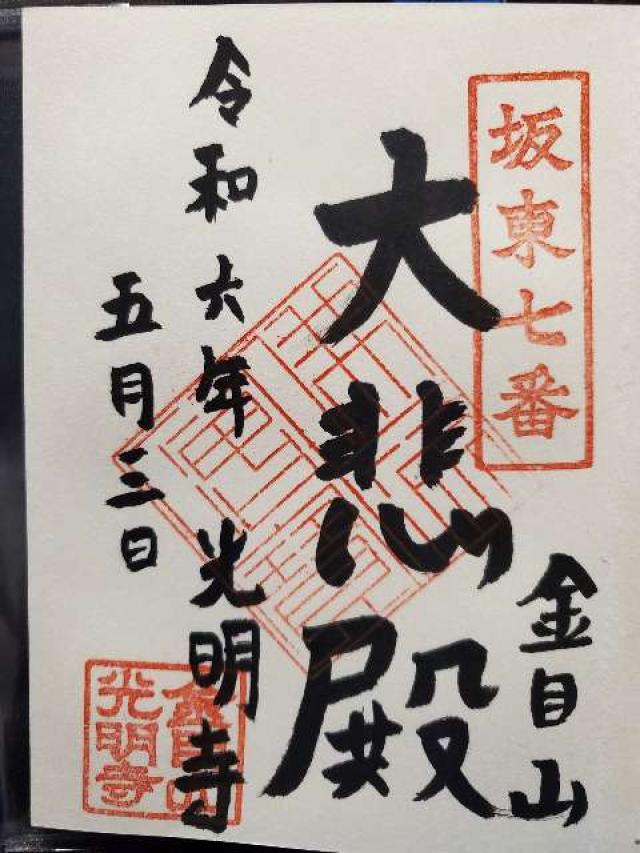 坂東七番
金目山
大悲殿
令和六年
光明寺
五月三日
金目山
光明寺